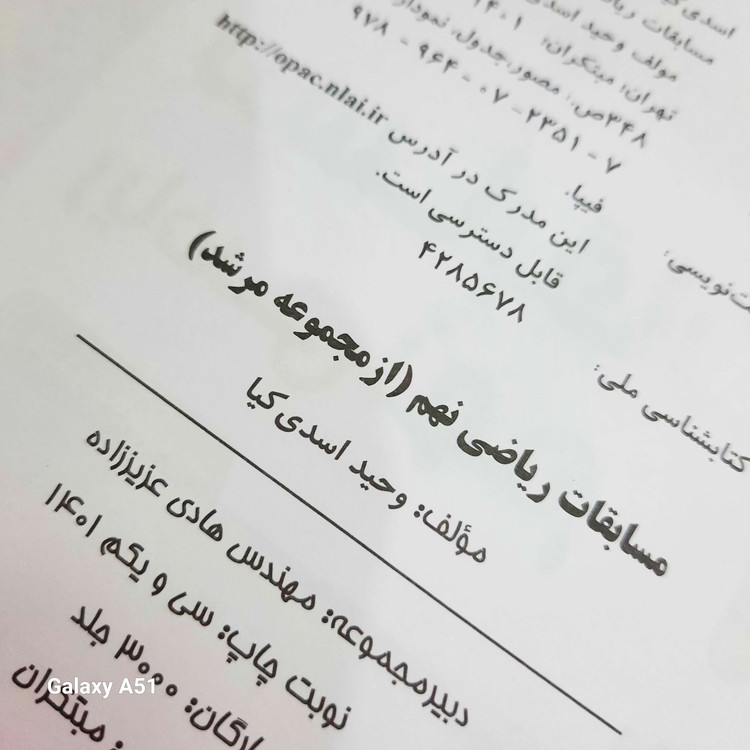 اسدی
مسابقات
مولف وحید اسدی
تهران: مبتکران: ۱۴۰۱
۳۴۸ص: مصور،جدول، نمودار
۹۷۸ - ۹۶۴ - ۰۷ - ۲۳۵۱ - ۷
فیپا.
این مدرک در آدرس http://opac.nlai.ir
قابل دسترسی است.
کتابشناسی ملی:
۴۲۸۵۶۷۸
مسابقات ریاضی نهم (از مجموعه مرشد)
مؤلف: وحید اسدی کیا
دبیرمجموعه: مهندس هادی عزیززاده
نوبت چاپ: سی و یکم ۱۴۰۱
۳۰۰۰ جلد
مبتکران
Galaxy A51